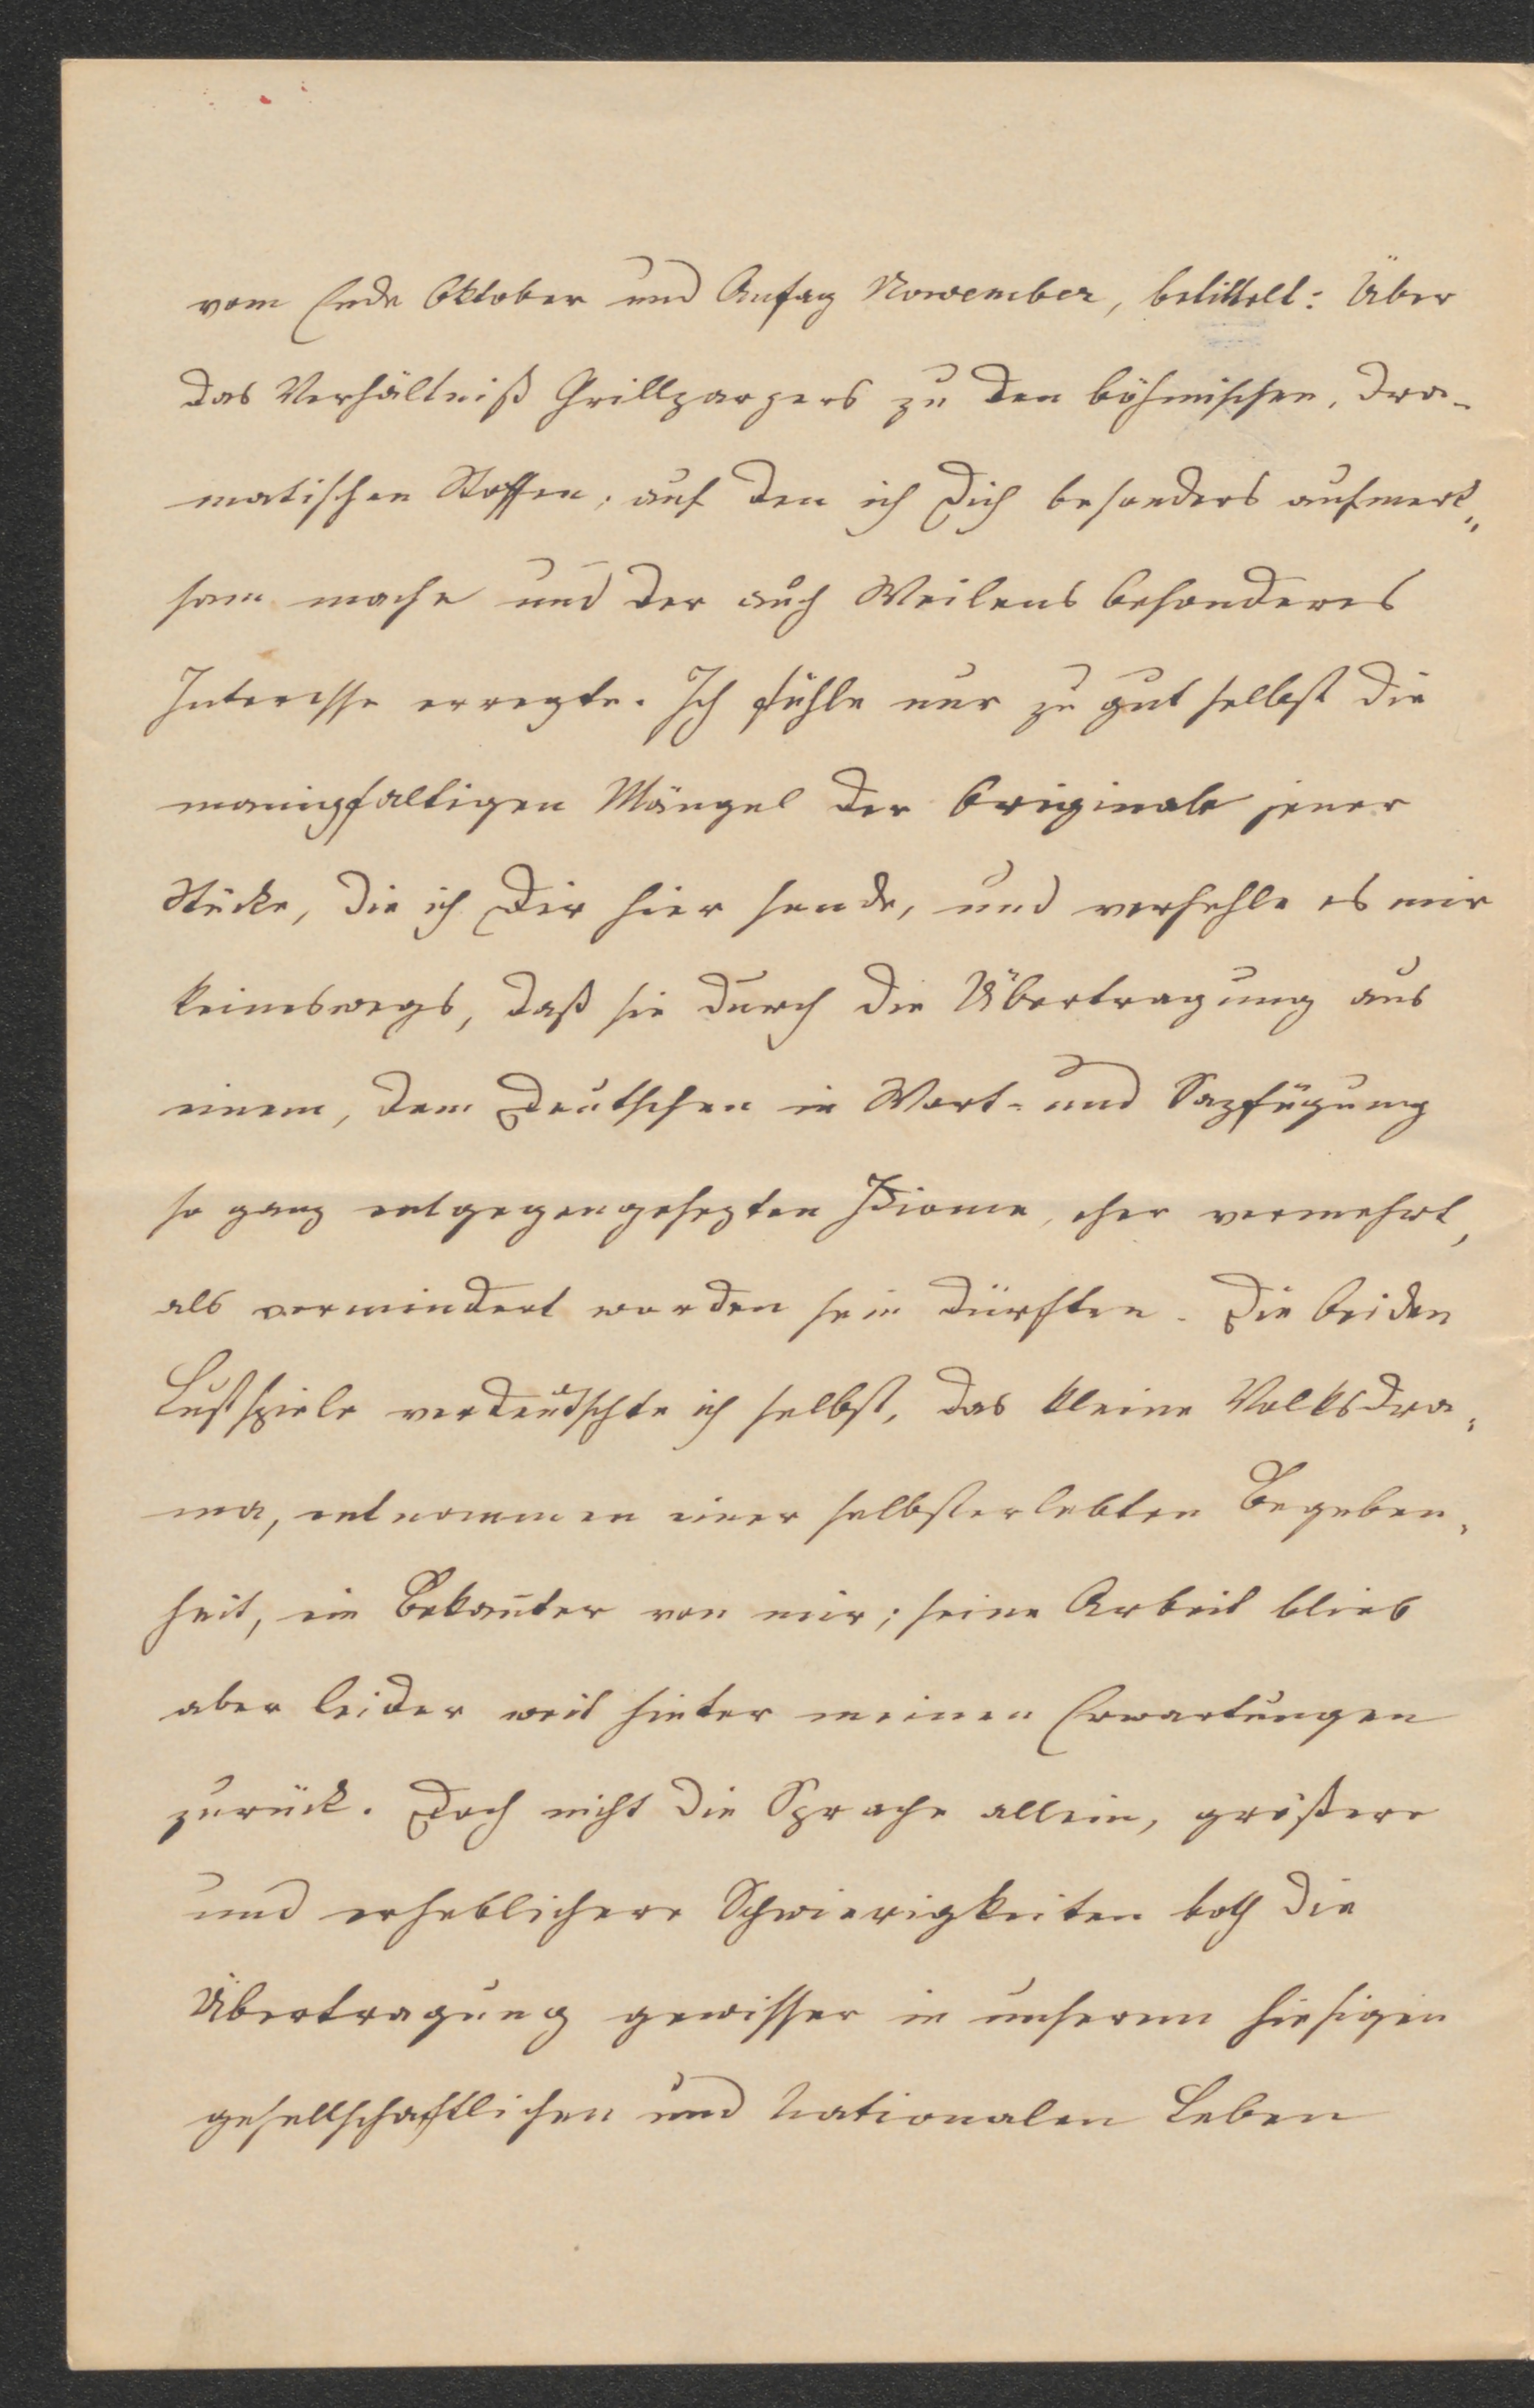 vom Ende Oktober und Anfag November, betittelt: Über
das Verhältniß Grillparzers zu den böhmischen, dra-
matischen Stoffen; auf den ich Dich besonders aufmerk-
sam mache und der auch Weilens besonderes
Interesse erregte. Ich fühle nur zu gut selbst die
manigfaltigen Mängel der Originale jener
Stücke, die ich Dir hier sende, und verhehle es mir
keineswegs, daß sie durch die Übertragung aus
einem, dem Deutschen in Wort- und Sazfügung
so ganz entgegengesezten Idiome, eher vermehrt,
als vermindert worden sein dürften. Die beiden
Lustspiele verdeutschte ich selbst, das kleine Volksdra-
ma, entnommen einer selbsterlebten Begeben-
heit, ein Bekan̅ter von mir; seine Arbeit blieb
aber leider weit hinter meinen Erwartungen
zurück. Doch nicht die Sprache allein, größere
und erheblichere Schwierigkeiten both die
Übertragung gewisser in unserem hiesigen
gesellschaftlichen und nationalen Leben